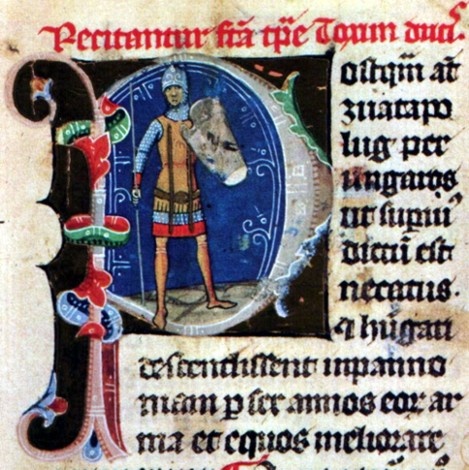 Recitantur fc̄a tp̄e Toxun duc̄.
Postq̄m at̄
zuatapo
lug per
ungaros
ut sup̄iu᷒
dictū est
necatus.
⁊ hūgari
descendissent in panno
niam p̱ sex annos eoꝝ ar
ma et equos meliorare